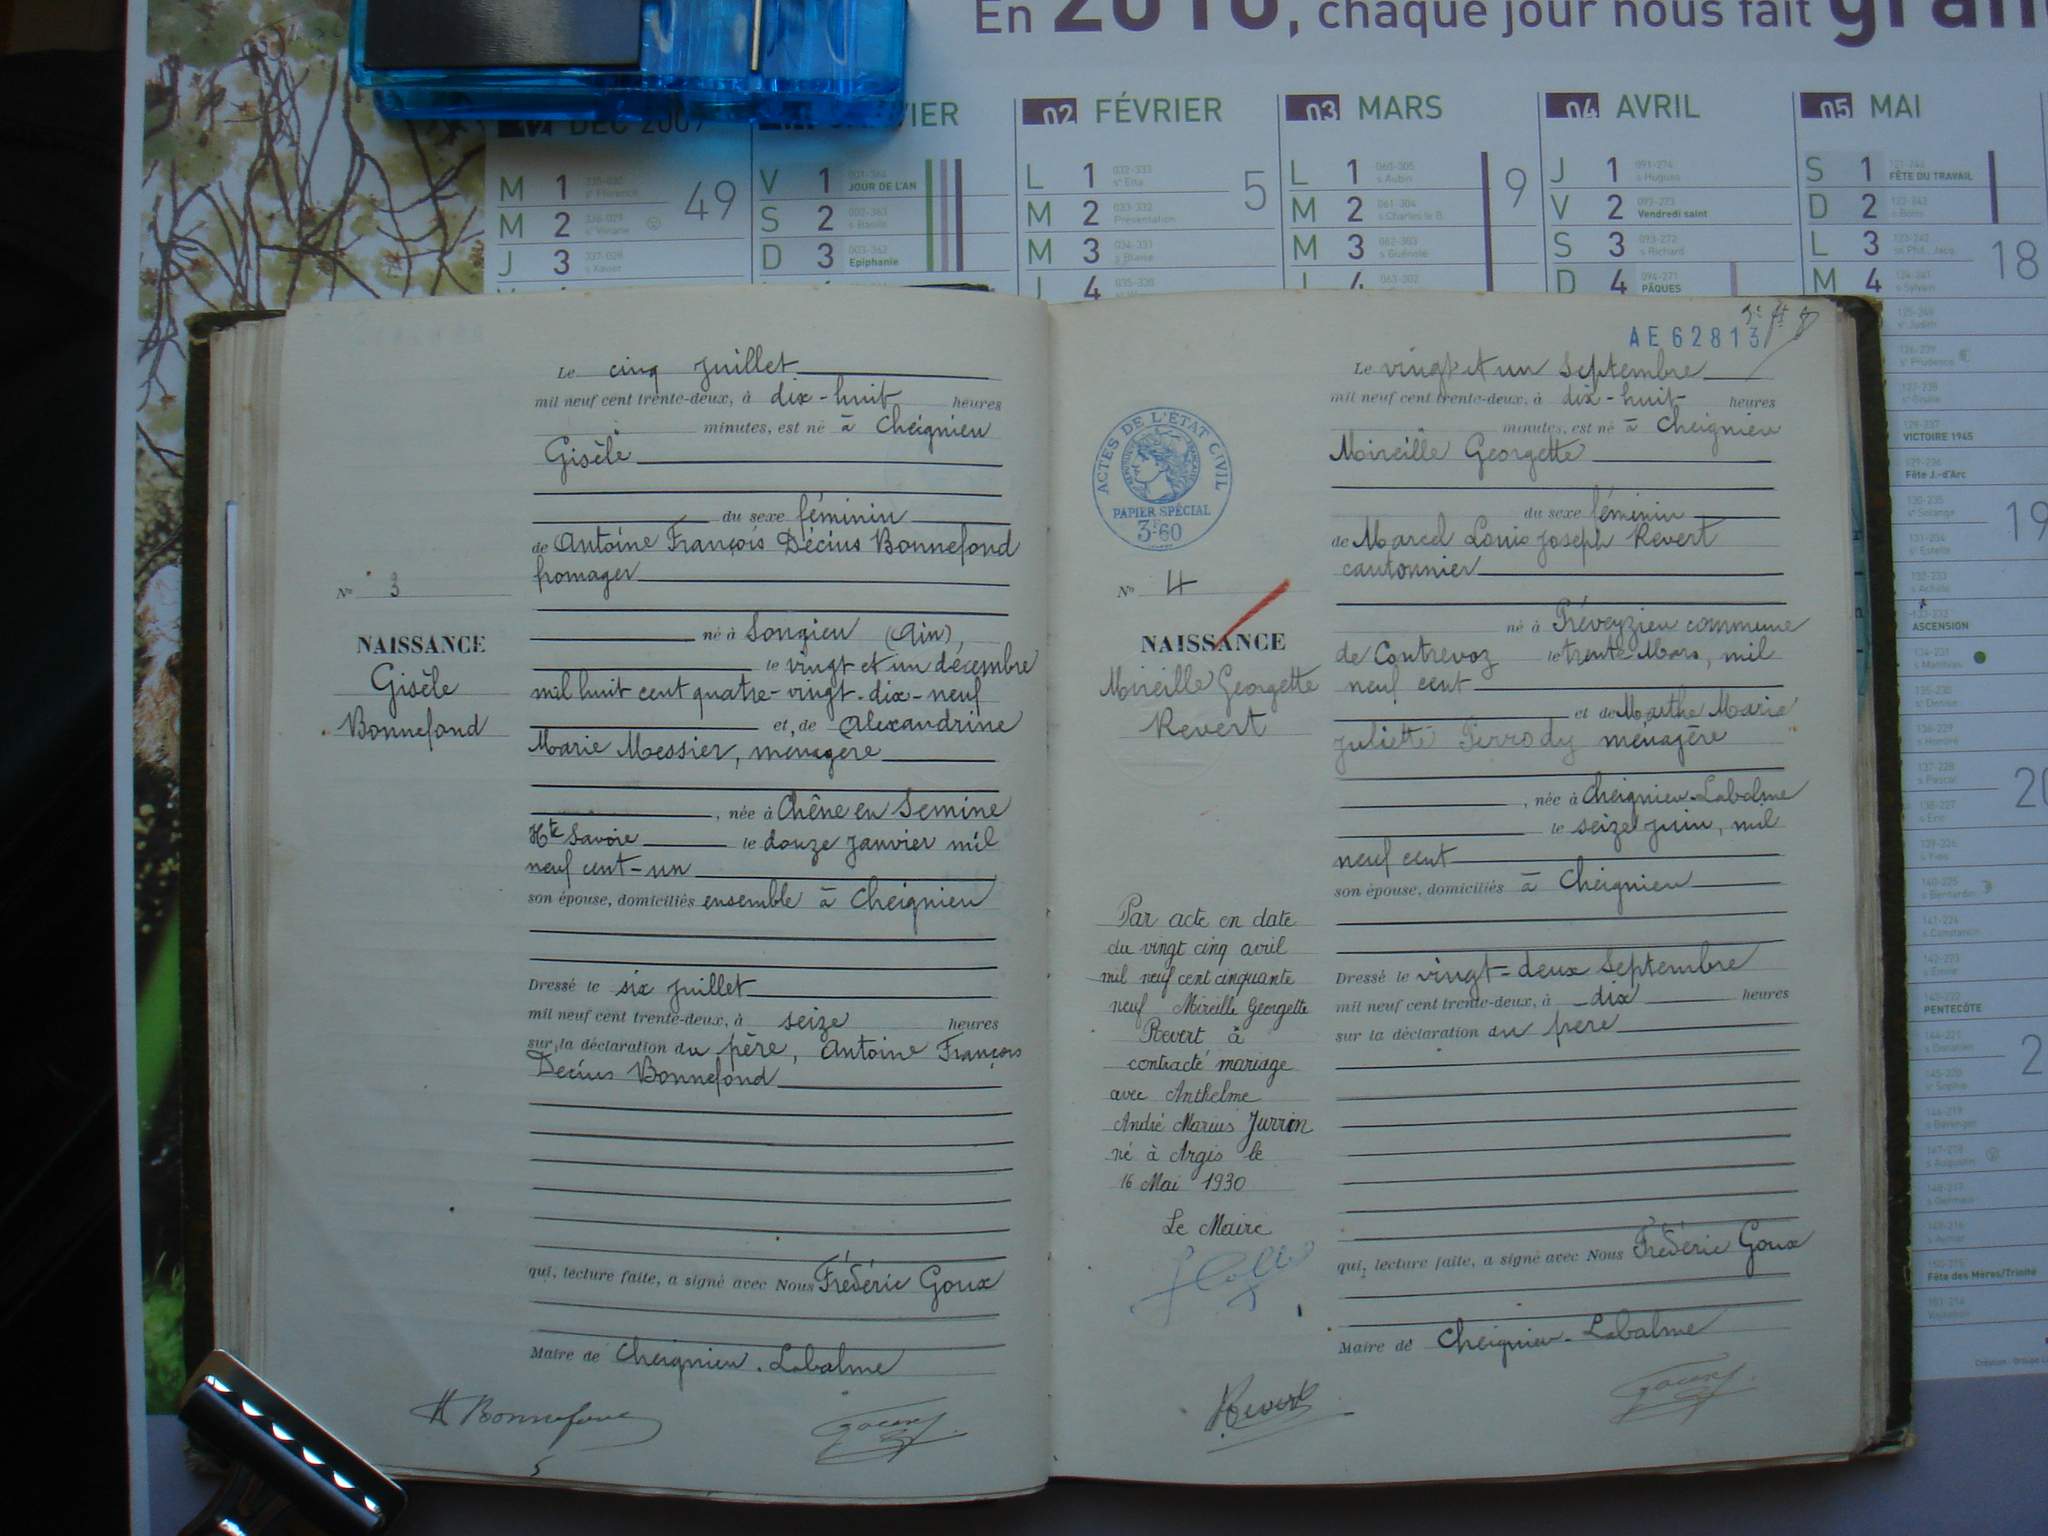 En 2010, chaque jour nous fait gran
DÉC 2009
VIER
02 FÉVRIER
03 MARS
04 AVRIL
05 MAI
M 1 49
M 2
J 3
V 1 JOUR DE L'AN
S 2
D 3 Epiphanie
L 1 5
M 2
M 3
J 4
L 1 9
M 2
M 3
J 4
J 1
V 2 Vendredi saint
S 3
D 4 PÂQUES
S 1 FÊTE DU TRAVAIL
D 2
L 3 18
M 4
VICTOIRE 1945
Fête J.-d'Arc
19
ASCENSION
20
PENTECÔTE
2
Fête des Mères/Trinité
Le cinq Juillet
mil neuf cent trente-deux, à dix-huit heures
minutes, est né à Cheignieu
Gisèle
du sexe féminin
de Antoine François Décius Bonnefond
fromager
né à Songieu (Ain),
le vingt et un décembre
mil huit cent quatre-vingt-dix-neuf
et, de Alexandrine
Marie Messier, ménagère
, née à Chêne en Semine
Hte Savoie le douze Janvier mil
neuf cent-un
son épouse, domiciliés ensemble à Cheignieu
Dressé le six Juillet
mil neuf cent trente-deux, à seize heures
sur la déclaration du père, Antoine François
Décius Bonnefond
qui, lecture faite, a signé avec Nous Frédéric Goux
Maire de Cheignieu-Labalme
No 3
NAISSANCE
Gisèle
Bonnefond
AE 62813
ACTES DE L'ETAT CIVIL
PAPIER SPÉCIAL
3F60
No 4
NAISSANCE
Mireille Georgette
Revert
Par acte en date
du vingt cinq avril
mil neuf cent cinquante
neuf Mireille Georgette
Revert à
contracté mariage
avec Anthelme
André Marius Jurron
né à Argis le
16 Mai 1930
Le Maire
Le vingt et un Septembre
mil neuf cent trente-deux, à dix-huit heures
minutes, est né à Cheignieu
Mireille Georgette
du sexe féminin
de Marcel Louis Joseph Revert
cantonnier
né à Préveyzieu commune
de Contrevoz le trente Mars, mil
neuf cent
et de Marthe Marie
Juliette Perrody ménagère
, née à Cheignieu-Labalme
le seize Juin, mil
neuf cent
son épouse, domiciliés à Cheignieu
Dressé le vingt-deux Septembre
mil neuf cent trente-deux, à dix heures
sur la déclaration du père
qui, lecture faite, a signé avec Nous Frédéric Goux
Maire de Cheignieu-Labalme
Revert